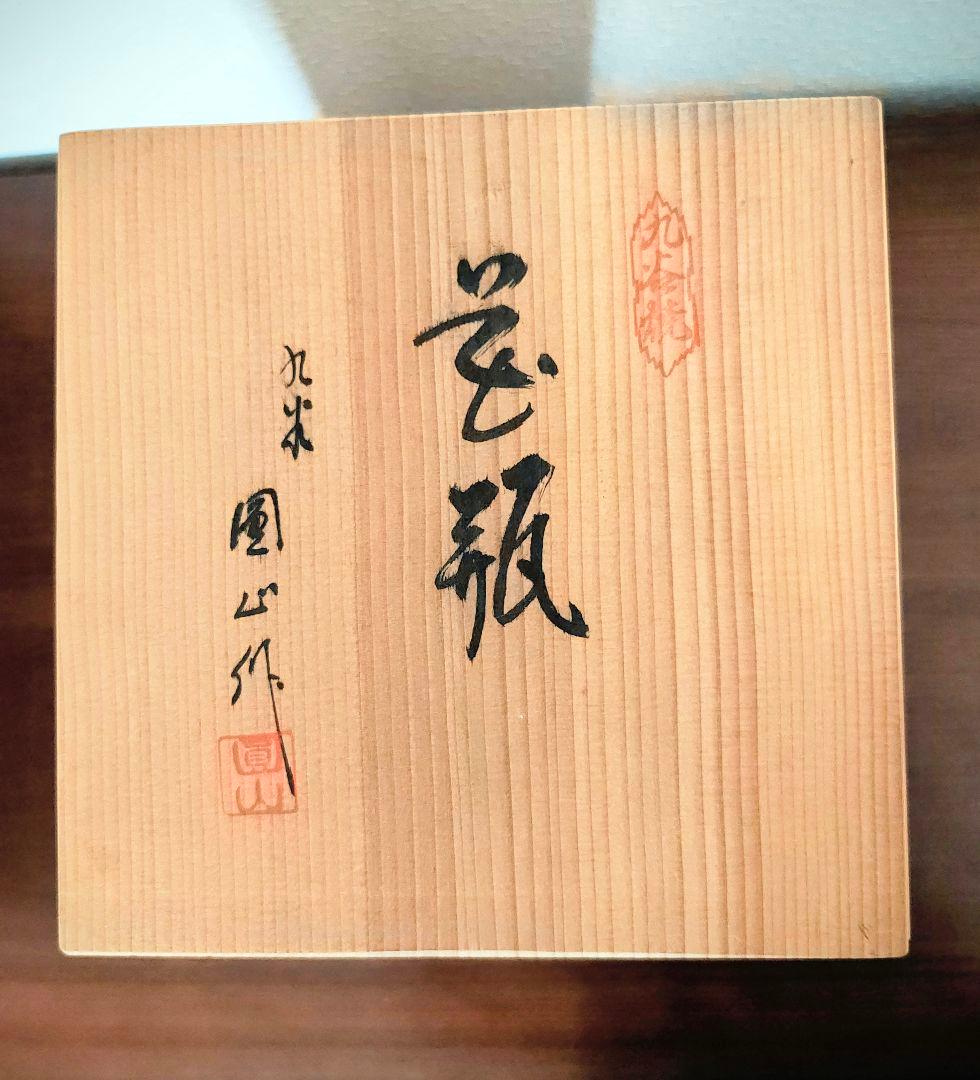 九谷焼
花瓶
九谷
圓山作
圓山